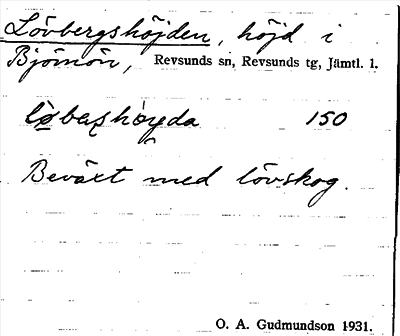 Lövbergshöjden, höjd i
Björnön, Revsunds sn, Revsunds tg, Jämtl. l.
150
Beväxt med lövskog.
O. A. Gudmundson 1931.